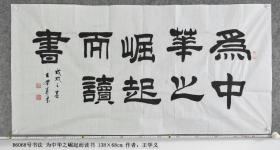 為中
華之
崛起
而讀
書
86068号书法 为中华之崛起而读书 138×68cm 作者：王华义